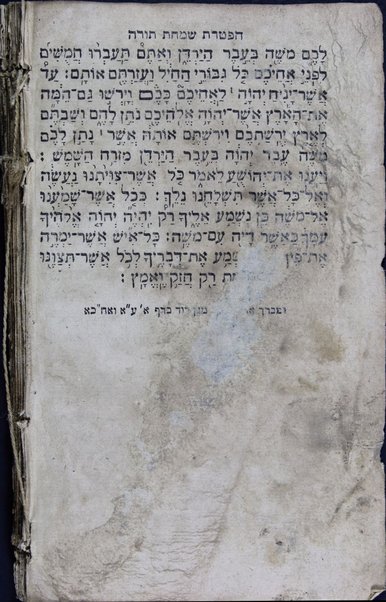 הפטרת שמחת תורה
לָכֶם מֹשֶׁה בְּעֵבֶר הַיַּרְדֵּן וְאַתֶּם תַּעַבְרוּ חֲמֻשִׁים
לִפְנֵי אֲחֵיכֶם כֹּל גִּבּוֹרֵי הַחַיִל וַעֲזַרְתֶּם אוֹתָם: עַד
אֲשֶׁר־יָנִיחַ יְהוָה לַאֲחֵיכֶם כָּכֶם וְיָרְשׁוּ גַם־הֵמָּה
אֶת־הָאָרֶץ אֲשֶׁר־יְהוָה אֱלֹהֵיכֶם נֹתֵן לָהֶם וְשַׁבְתֶּם
לְאֶרֶץ יְרֻשַּׁתְכֶם וִירִשְׁתֶּם אוֹתָהּ אֲשֶׁר נָתַן לָכֶם
מֹשֶׁה עֶבֶד יְהוָה בְּעֵבֶר הַיַּרְדֵּן מִזְרַח הַשָּׁמֶשׁ:
וַיַּעֲנוּ אֶת־יְהוֹשֻׁעַ לֵאמֹר כֹּל אֲשֶׁר־צִוִּיתָנוּ נַעֲשֶׂה
וְאֶל־כָּל־אֲשֶׁר תִּשְׁלָחֵנוּ נֵלֵךְ: כְּכֹל אֲשֶׁר־שָׁמַעְנוּ
אֶל־מֹשֶׁה כֵּן נִשְׁמַע אֵלֶיךָ רַק יִהְיֶה יְהוָה אֱלֹהֶיךָ
עִמָּךְ כַּאֲשֶׁר הָיָה עִם־מֹשֶׁה: כָּל־אִישׁ אֲשֶׁר־יַמְרֶה
אֶת־פִּיךָ אֶת־דְּבָרֶיךָ לְכֹל אֲשֶׁר־תְּצַוֶּנּוּ
רַק חֲזַק וֶאֱמָץ:
מגן דוד בדף א' ע"א ואח"כא